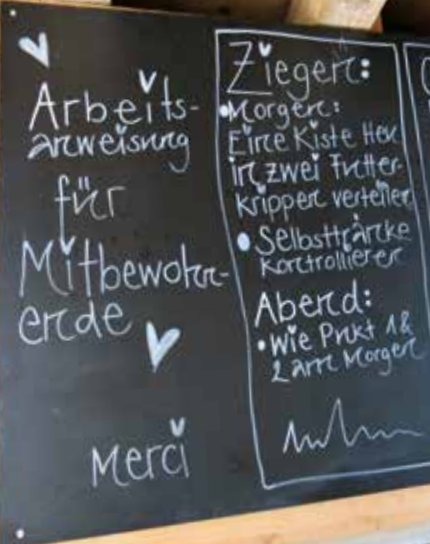 Arbeits-
anweisung
für
Mitbewohn-
ende
Merci
Ziegen:
•Morgen:
Eine Kiste Heu
in zwei Futter-
krippen verteilen
• Selbsttränke
kontrollieren
Abend:
• Wie Pnkt 1&
2 am Morgen